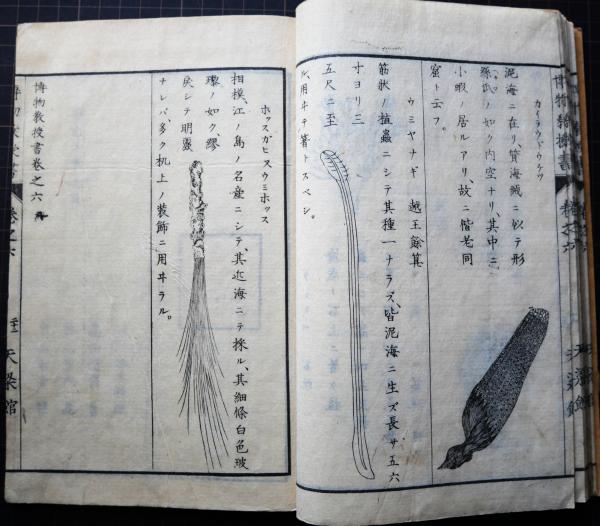 カイラウドウケツ
泥海ニ在リ、貸海綿ニ似テ形
絲瓜ノ如ク内空ナリ、其中ニ
小蝦ノ居ルアリ、故ニ偕老同
竅ト云フ。
ウミヤナギ 越王餘筭
筋狀ノ植蟲ニシテ其種一ナラズ、皆泥海ニ生ズ長サ五六
寸ヨリ三
五尺ニ至
ル、用ヰテ箸トスベシ。
ホッスガヒ スウミホッス
相摸、江ノ島ノ名產ニシテ、其近海ニテ採ル、其細條白色玻
璨ノ如ク、繆
戾シテ明亜
ナレバ、多ク机上ノ裝飾ニ用ヰラル。
博物敎授書卷之六
卷之六
天梁館